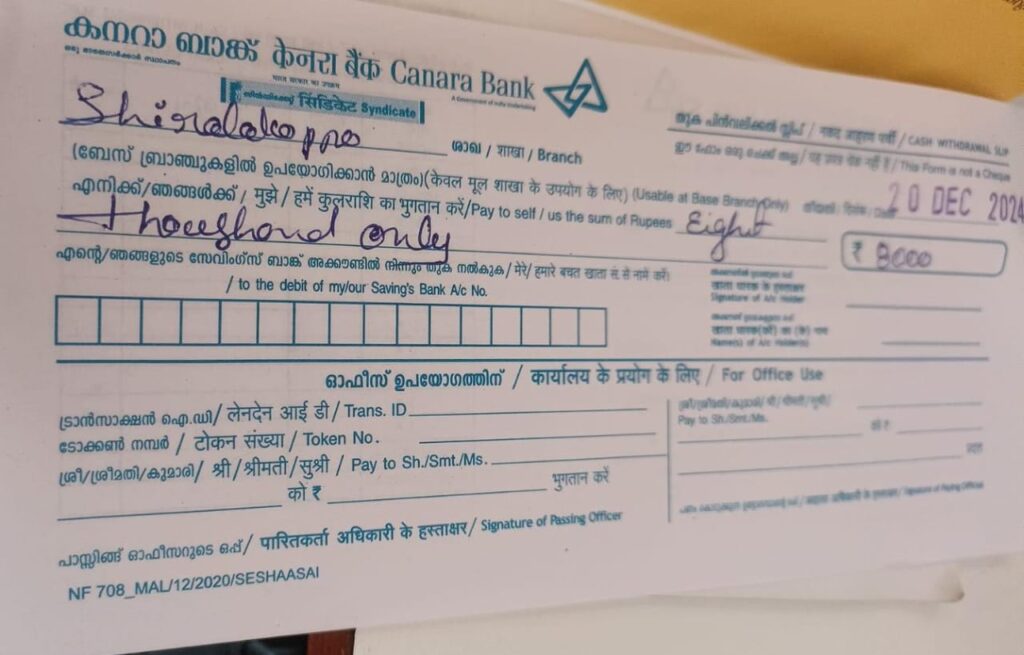 കനറാ ബാങ്ക് केनरा बैंक Canara Bank
भारत सरकार का उपक्रम A Government of India Undertaking
सिंडिकेट Syndicate
തുക പിൻവലിക്കൽ സ്ലിപ് / नकद आहरण पर्ची / CASH WITHDRAWAL SLIP
Shiralakoppa ശാഖ / शाखा / Branch
ഈ ഫോറം ഒരു ചെക്ക് അല്ല / यह प्रपत्र चेक नहीं है / This Form is not a Cheque
(ബേസ് ബ്രാഞ്ചുകളിൽ ഉപയോഗിക്കാൻ മാത്രം) (केवल मूल शाखा के उपयोग के लिए) (Usable at Base Branch Only) 20 DEC 2024
എനിക്ക്/ഞങ്ങൾക്ക് / मुझे / हमें कुलराशि का भुगतान करें/Pay to self / us the sum of Rupees Eight
Thoushand only ₹ 8000
എന്റെ/ഞങ്ങളുടെ സേവിംഗ്സ് ബാങ്ക് അക്കൗണ്ടിൽ നിന്നും തുക നൽകുക / मेरे/ हमारे बचत खाता सं. से नामे करें।
/ to the debit of my/our Saving's Bank A/c No.
खाता धारक के हस्ताक्षर
Signature of A/c Holder
खाता धारक(कों) का (के) नाम
Name(s) of A/c Holder(s)
ഓഫീസ് ഉപയോഗത്തിന് / कार्यालय के प्रयोग के लिए / For Office Use
ട്രാൻസാക്ഷൻ ഐ.ഡി/ लेनदेन आई डी / Trans. ID
ടോക്കൺ നമ്പർ / टोकन संख्या / Token No.
ശ്രീ/ശ്രീമതി/കുമാരി/ श्री/श्रीमती/सुश्री / Pay to Sh./Smt./Ms.
को ₹ भुगतान करें
Pay to Sh./Smt./Ms. को ₹
പാസ്സിങ്ങ് ഓഫീസറുടെ ഒപ്പ്/ पारितकर्ता अधिकारी के हस्ताक्षर/ Signature of Passing Officer
Signature of Paying Official
NF 708_MAL/12/2020/SESHAASAI